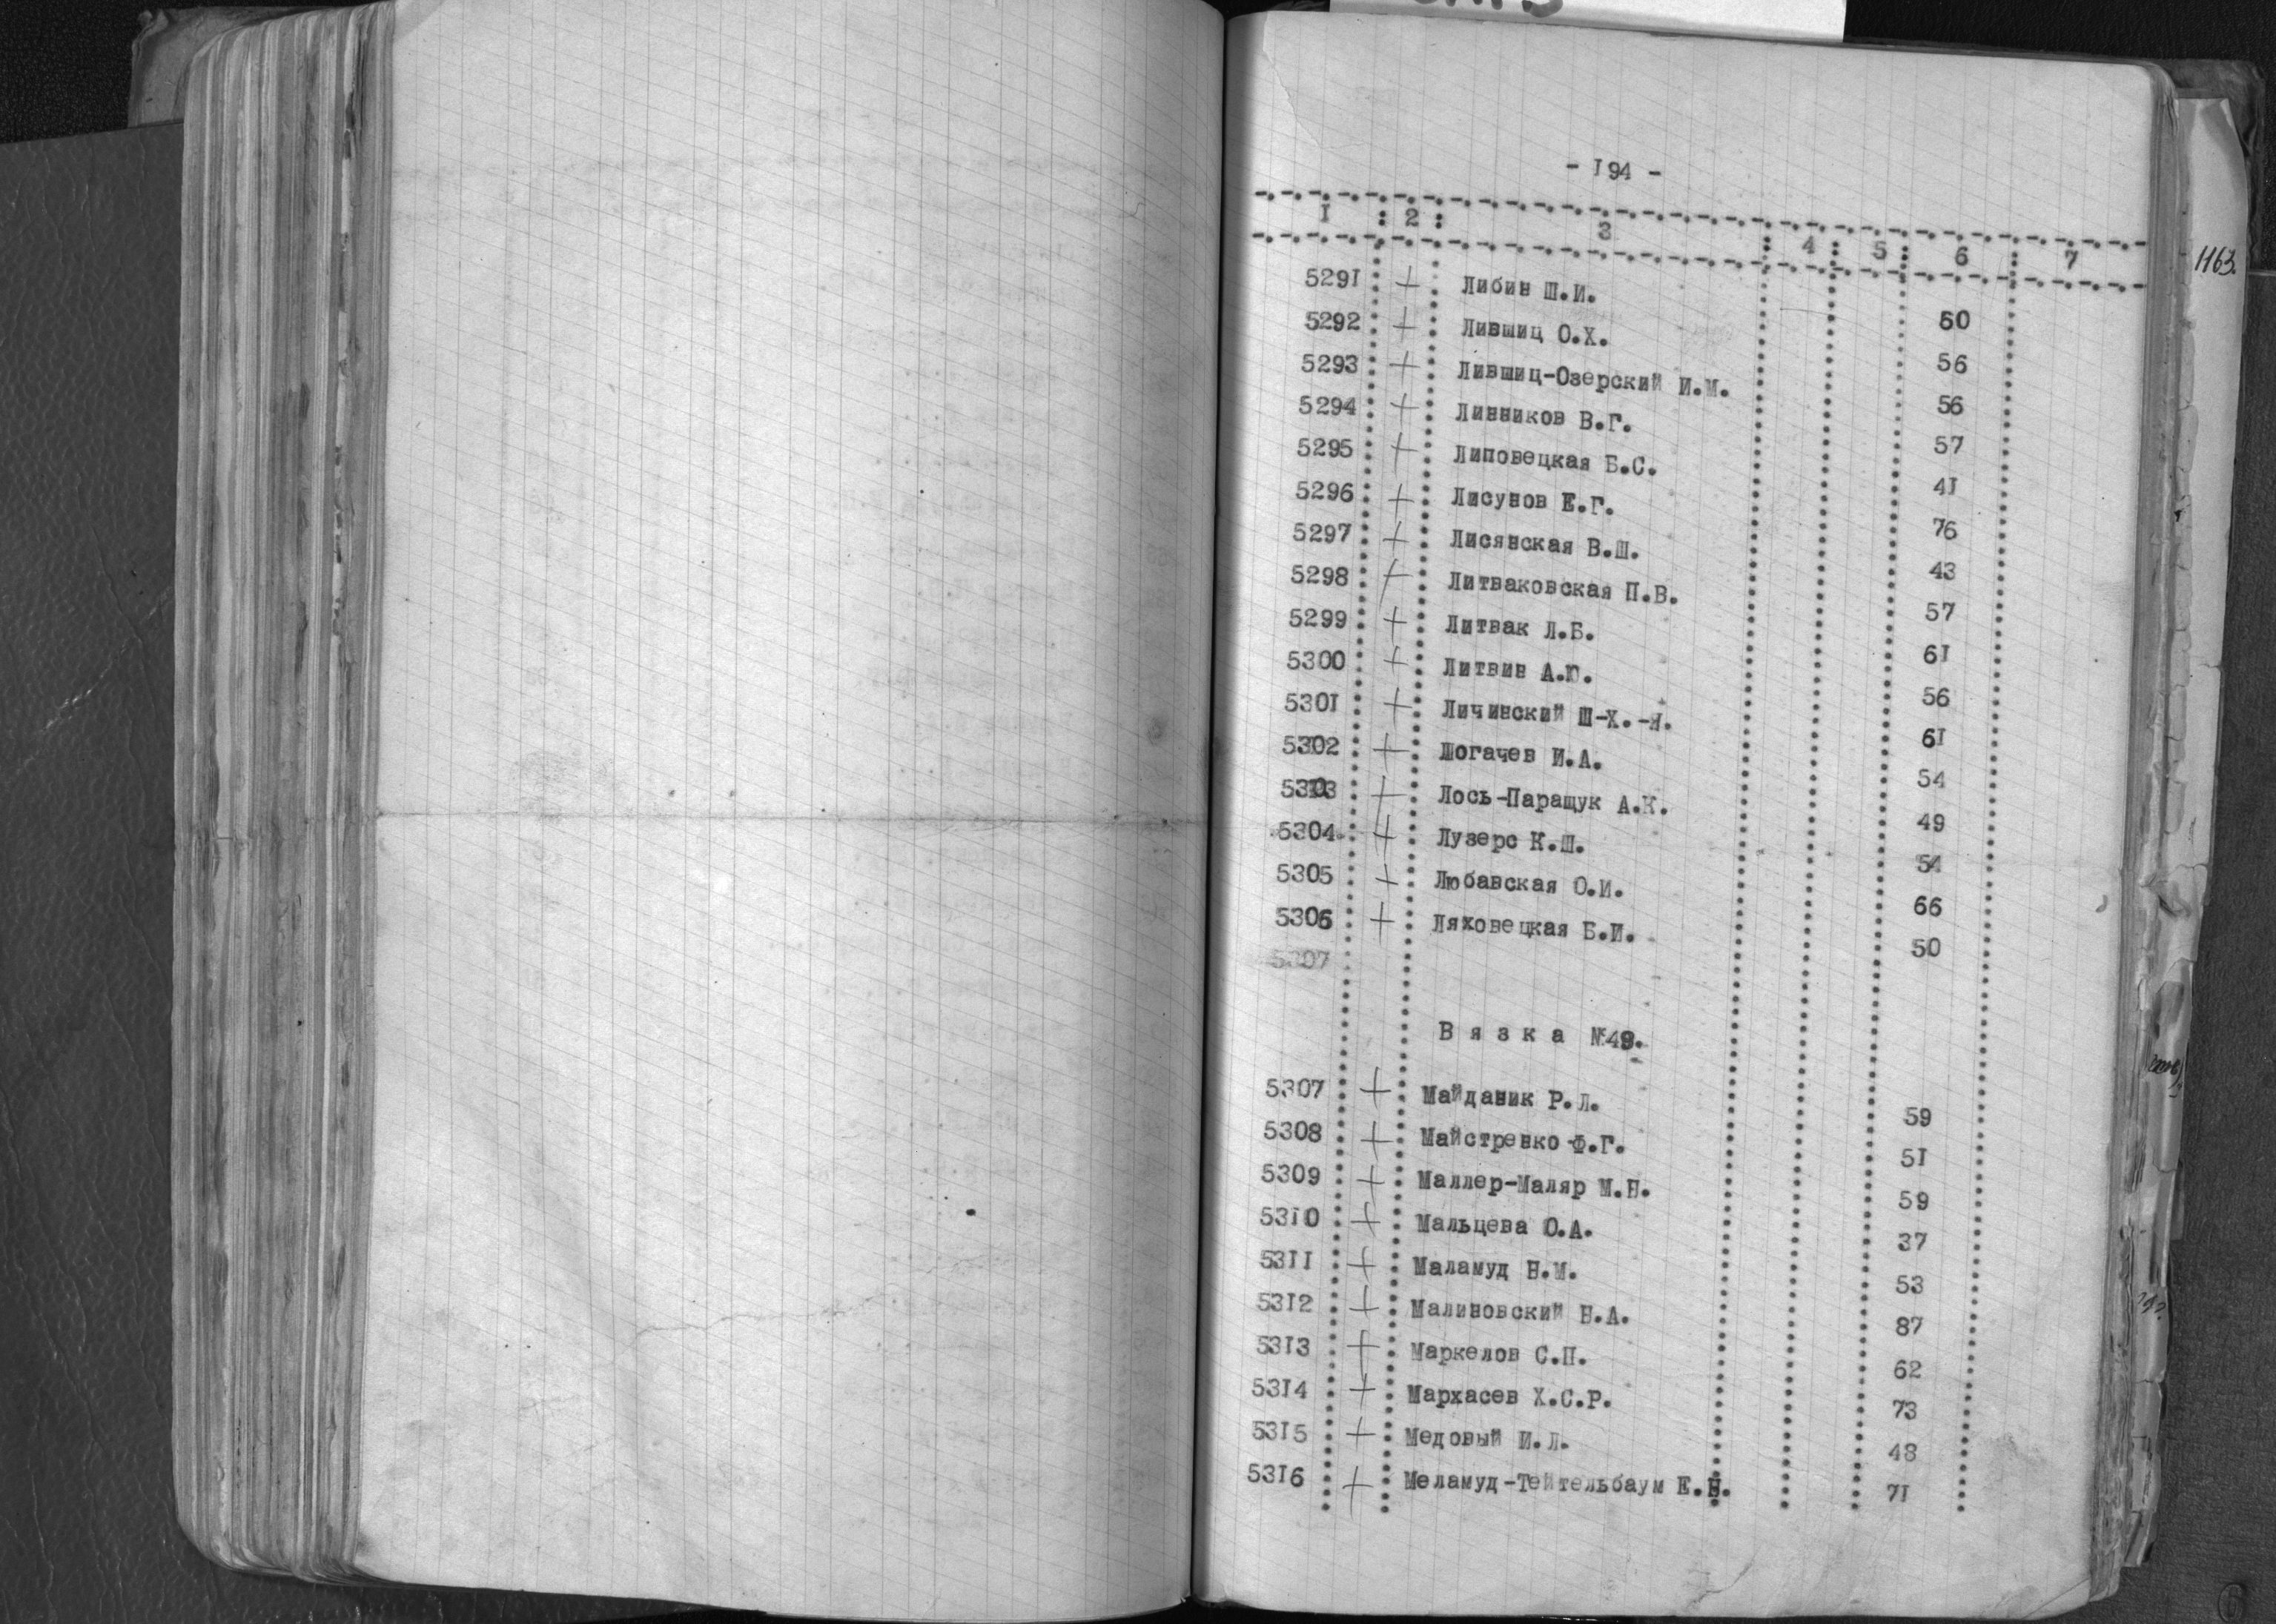 - I94 -
I : 2 : 3 : 4 : 5 : 6 : 7
1163.
529I + Либин Ш.И. 60
5292 + Лившиц О.Х. 56
5293 + Лившиц-Озерский И.М. 56
5294 + Линников В.Г. 57
5295 + Липовецкая Б.С. 4I
5296 + Лисунов Е.Г. 76
5297 + Лисянская В.Ш. 43
5298 + Литваковская П.В. 57
5299 + Литвак Л.Б. 6I
5300 + Литвин А.Ю. 56
530I + Личинский Ш-Х.-Я. 6I
5302 + Логачев И.А. 54
5303 + Лось-Паращук А.К. 49
5304 + Лузерс К.Ш. 54
5305 + Любавская О.И. 66
5306 + Ляховецкая Б.И. 50
5307
Вязка №49.
5307 + Майданик Р.Л. 59
5308 + Майстренко Ф.Г. 5I
5309 + Маллер-Маляр М.Н. 59
53I0 + Мальцева Ю.А. 37
53II + Маламуд Н.М. 53
53I2 + Малиновский Н.А. 87
53I3 + Маркелов С.П. 62
53I4 + Мархасев Х.С.Р. 73
53I5 + Медовый И.Л. 48
53I6 + Меламуд-Тейтельбаум Е.Н. 7I